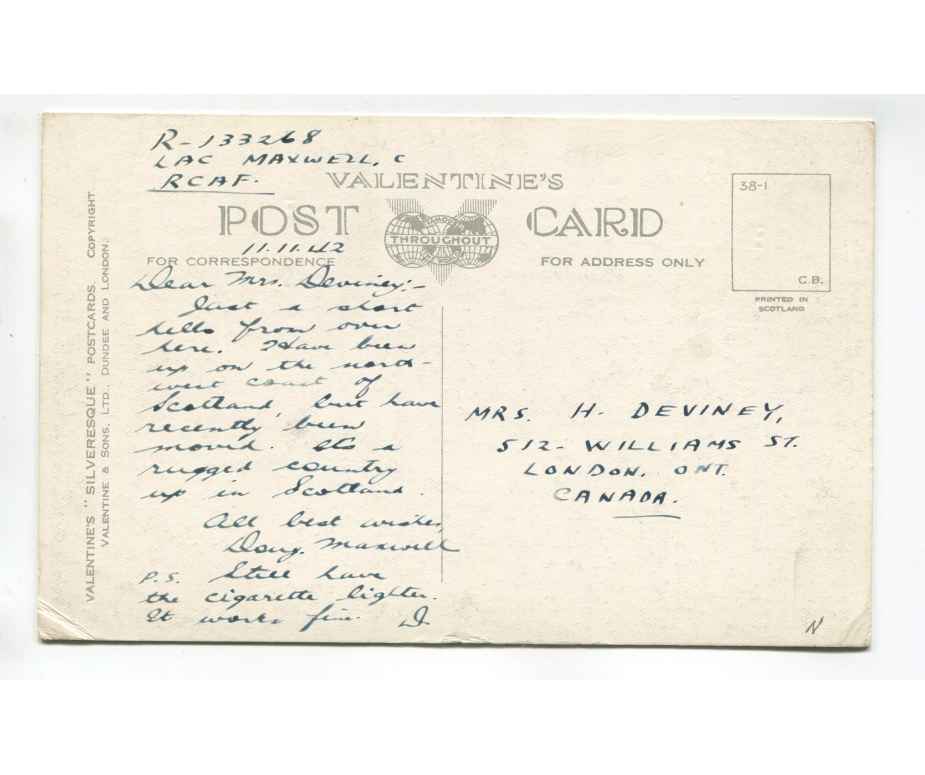 R-133268
LAC MAXWELL, C
RCAF.
VALENTINE'S
POST CARD
FAMOUS
THROUGHOUT
THE WORLD
11.11.42
FOR CORRESPONDENCE
FOR ADDRESS ONLY
38-1
C.B.
PRINTED IN
SCOTLAND
VALENTINE'S "SILVERESQUE" POSTCARDS. COPYRIGHT
VALENTINE & SONS, LTD., DUNDEE AND LONDON.
Dear Mrs. Deviney:-
Just a short
hello from over
here. Have been
up on the north-
west coast of
Scotland, but have
recently been
moved. Its a
rugged country
up in Scotland.
All best wishes,
Doug. Maxwell
P.S. Still have
the cigarette lighter.
It works fine. D.
MRS. H. DEVINEY,
512- WILLIAMS ST.
LONDON, ONT.
CANADA.
N